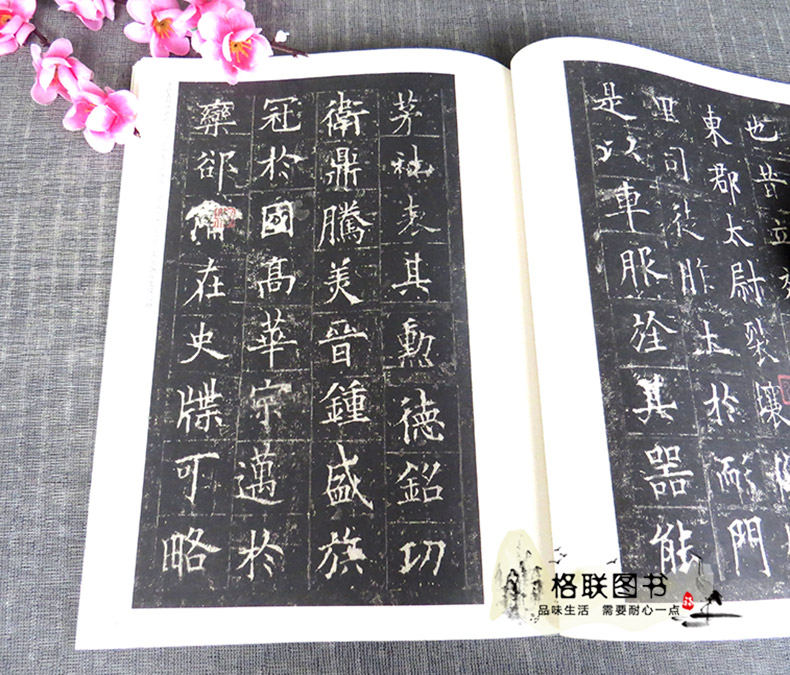 也昔立效
東郡太尉裂壤
里司徒胙土於耏門
是以車服旌其器能
茅社表其勳德銘功
衛鼎騰美晉鍾盛族
冠於國高華宗邁於
欒郤備在史牒可略
格联图书
品味生活 需要耐心一点